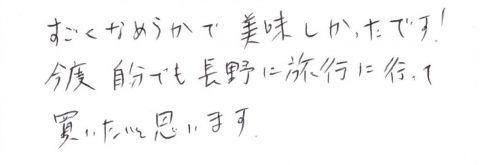 すごくなめらかで 美味しかったです!
今度 自分でも長野に旅行に行って
買いたいと思います.